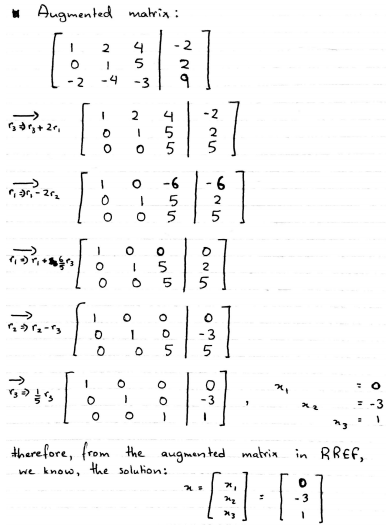 Augmented matrix:
[ 1 2 4 | -2 ]
[ 0 1 5 | 2 ]
[ -2 -4 -3 | 9 ]
r₃ ⇒ r₃ + 2r₁ → [ 1 2 4 | -2 ]
[ 0 1 5 | 2 ]
[ 0 0 5 | 5 ]
r₁ ⇒ r₁ - 2r₂ → [ 1 0 -6 | -6 ]
[ 0 1 5 | 2 ]
[ 0 0 5 | 5 ]
r₁ ⇒ r₁ + 6/5 r₃ → [ 1 0 0 | 0 ]
[ 0 1 5 | 2 ]
[ 0 0 5 | 5 ]
r₂ ⇒ r₂ - r₃ → [ 1 0 0 | 0 ]
[ 0 1 0 | -3 ]
[ 0 0 5 | 5 ]
r₃ ⇒ 1/5 r₃ → [ 1 0 0 | 0 ] , x₁ = 0
[ 0 1 0 | -3 ] x₂ = -3
[ 0 0 1 | 1 ] x₃ = 1
therefore, from the augmented matrix in RREF,
we know, the solution:
x = [ x₁ ] = [ 0 ]
[ x₂ ] [ -3 ]
[ x₃ ] [ 1 ]